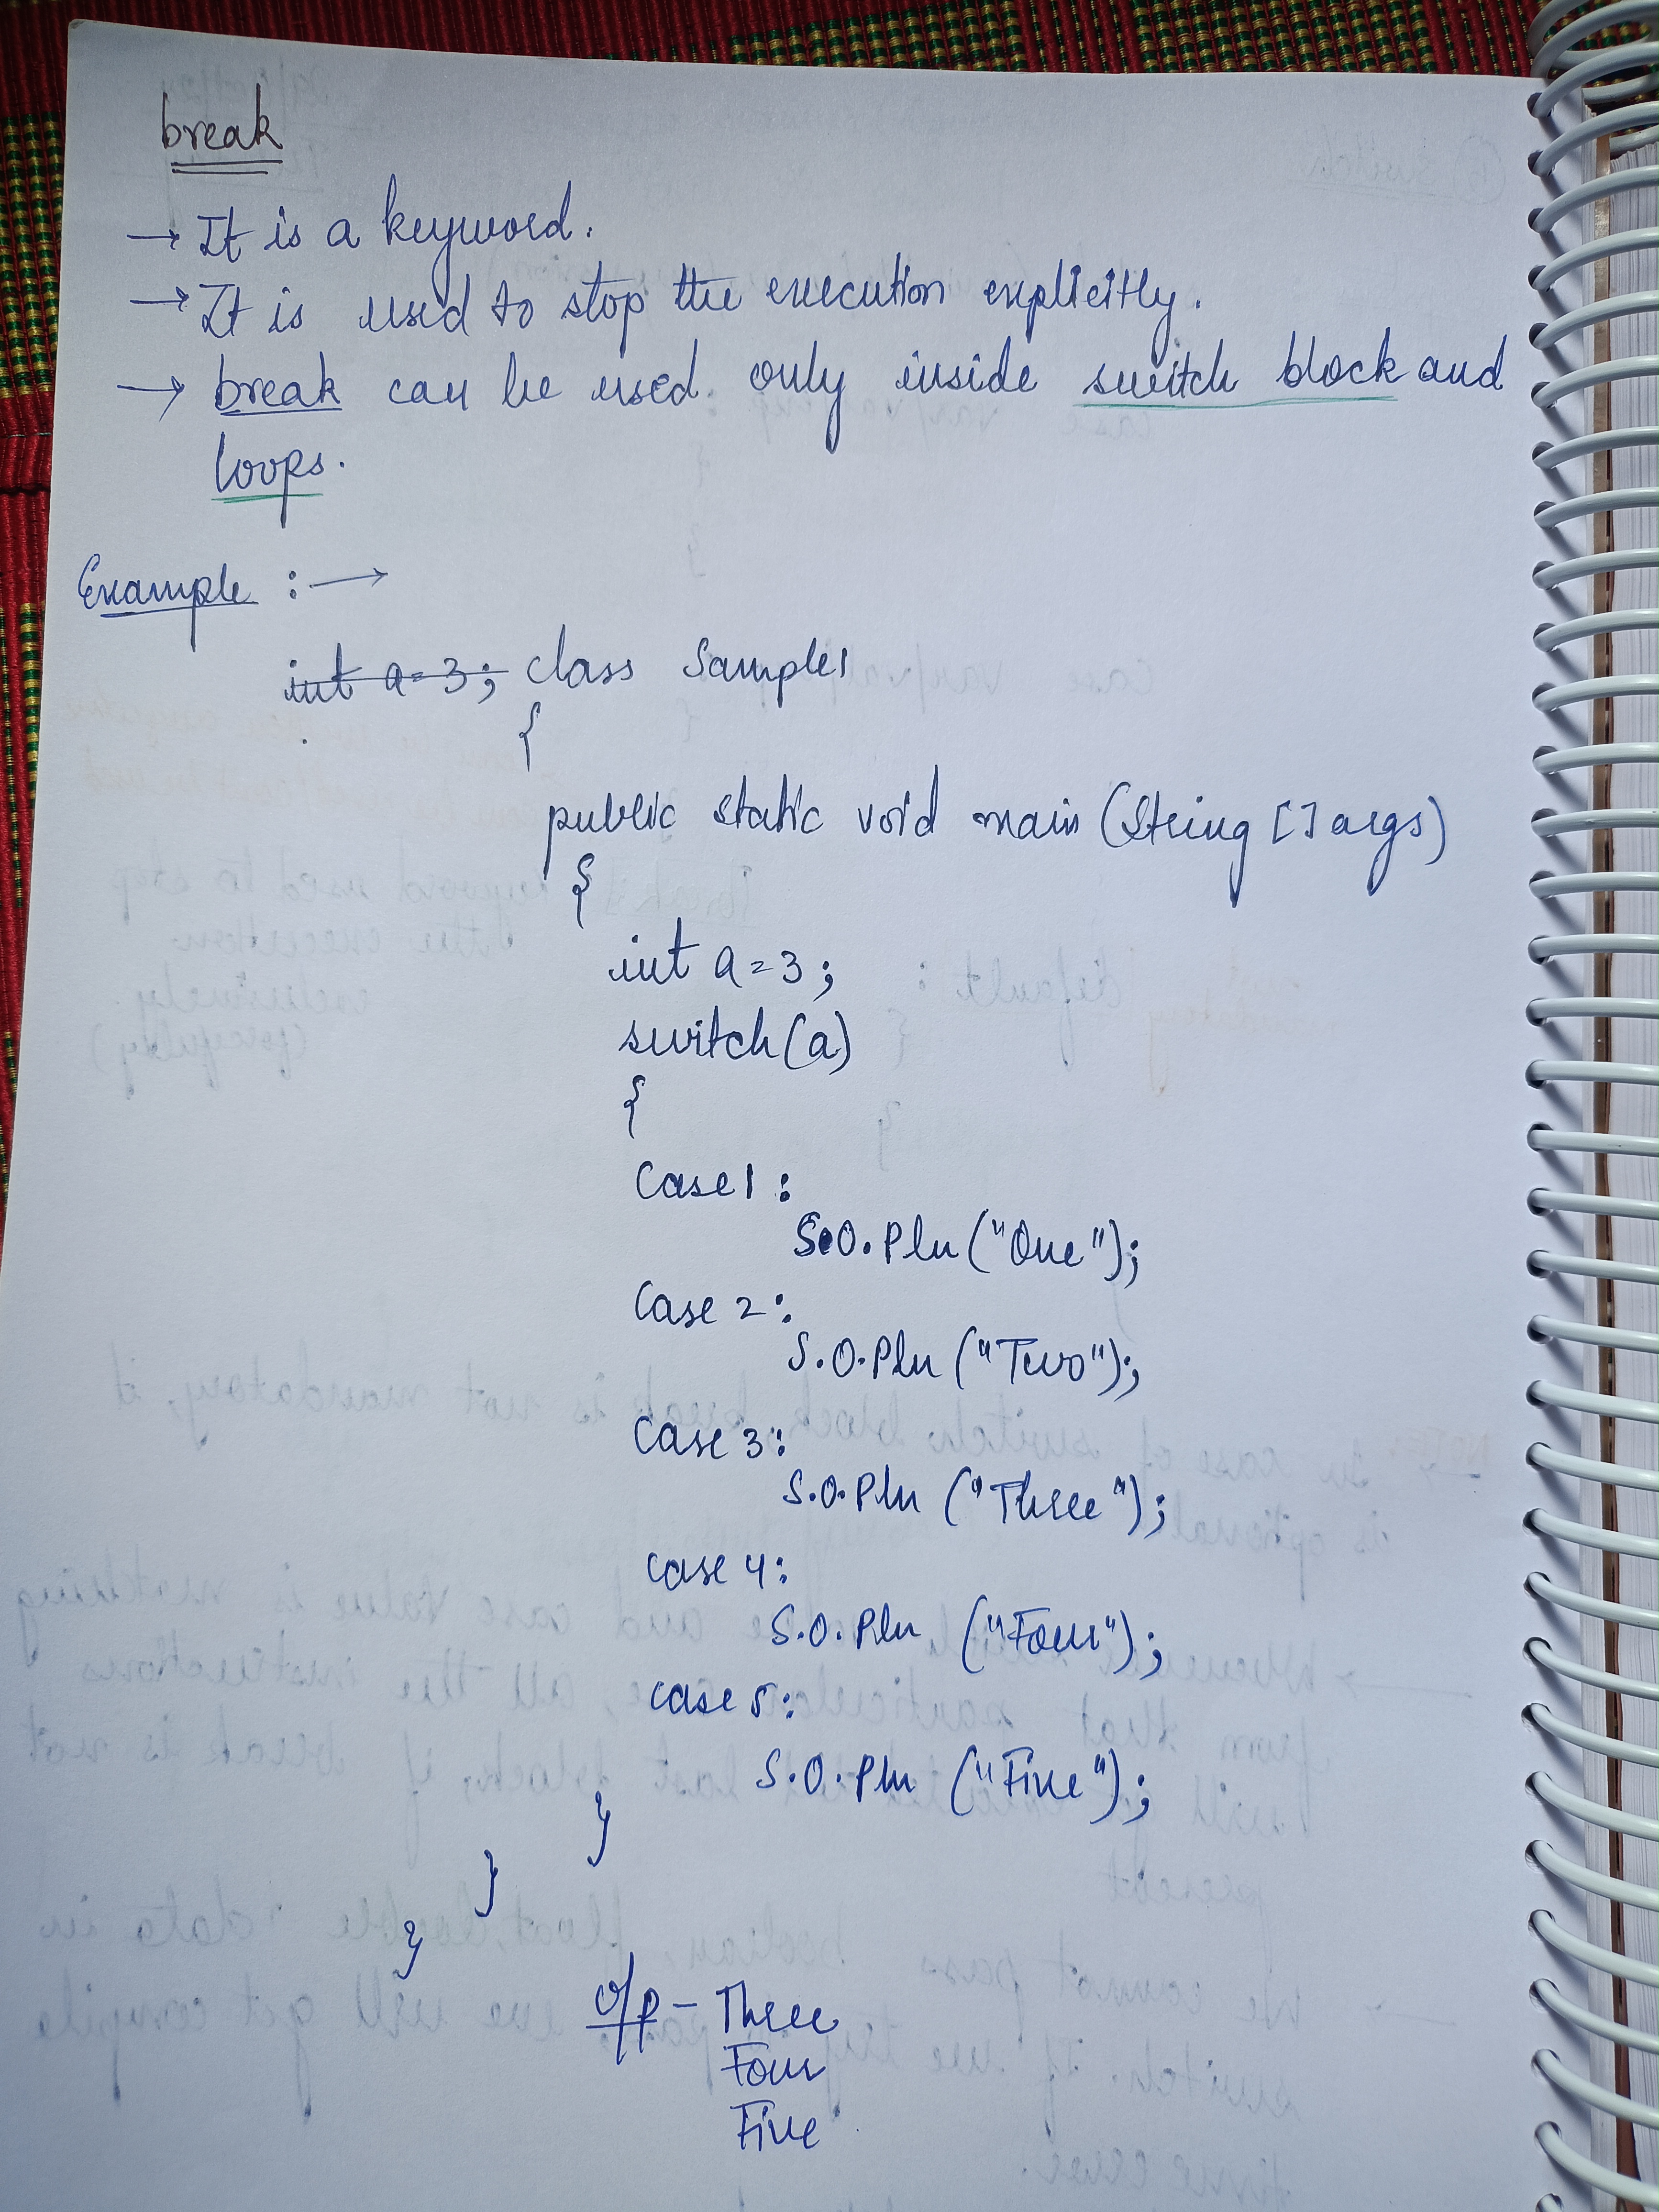 break
→ It is a keyword.
→ It is used to stop the execution explicitly.
→ break can be used only inside switch block and
loops.
Example :→
int a=3; class Sample1
{
public static void main (String [] args)
{
int a=3;
switch(a)
{
Case 1:
S.O.Pln ("One");
Case 2:
S.O.Pln ("Two");
Case 3:
S.O.Pln ("Three");
case 4:
S.O.Pln ("Four");
case 5:
S.O.Pln ("Five");
}
}
}
O/P - Three
Four
Five